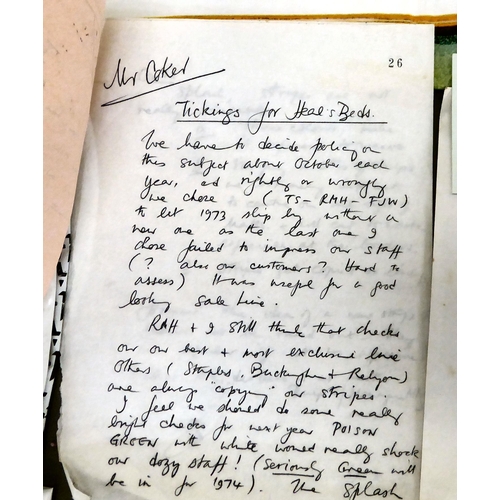 Mr Coker
26
Tickings for Heal's Beds.
We have to decide policy on
this subject about October each
year, ad rightly or wrongly
we chose (TS - RMH - FJW)
to let 1973 slip by without a
new one as the last one I
chose failed to impress our staff
(? also our customers? Hard to
assess) It was useful for a good
looking Sale Line.
RAH + I still think that checks
our our best + most exclusive line
Others (Staples, Buckingham + Relyon)
are always "copying" our stripes.
I feel we should do some really
bright checks for next year POISON
GREEN with white would really shock
our dozy staff! (Seriously Green will
be in for 1974). The Splash